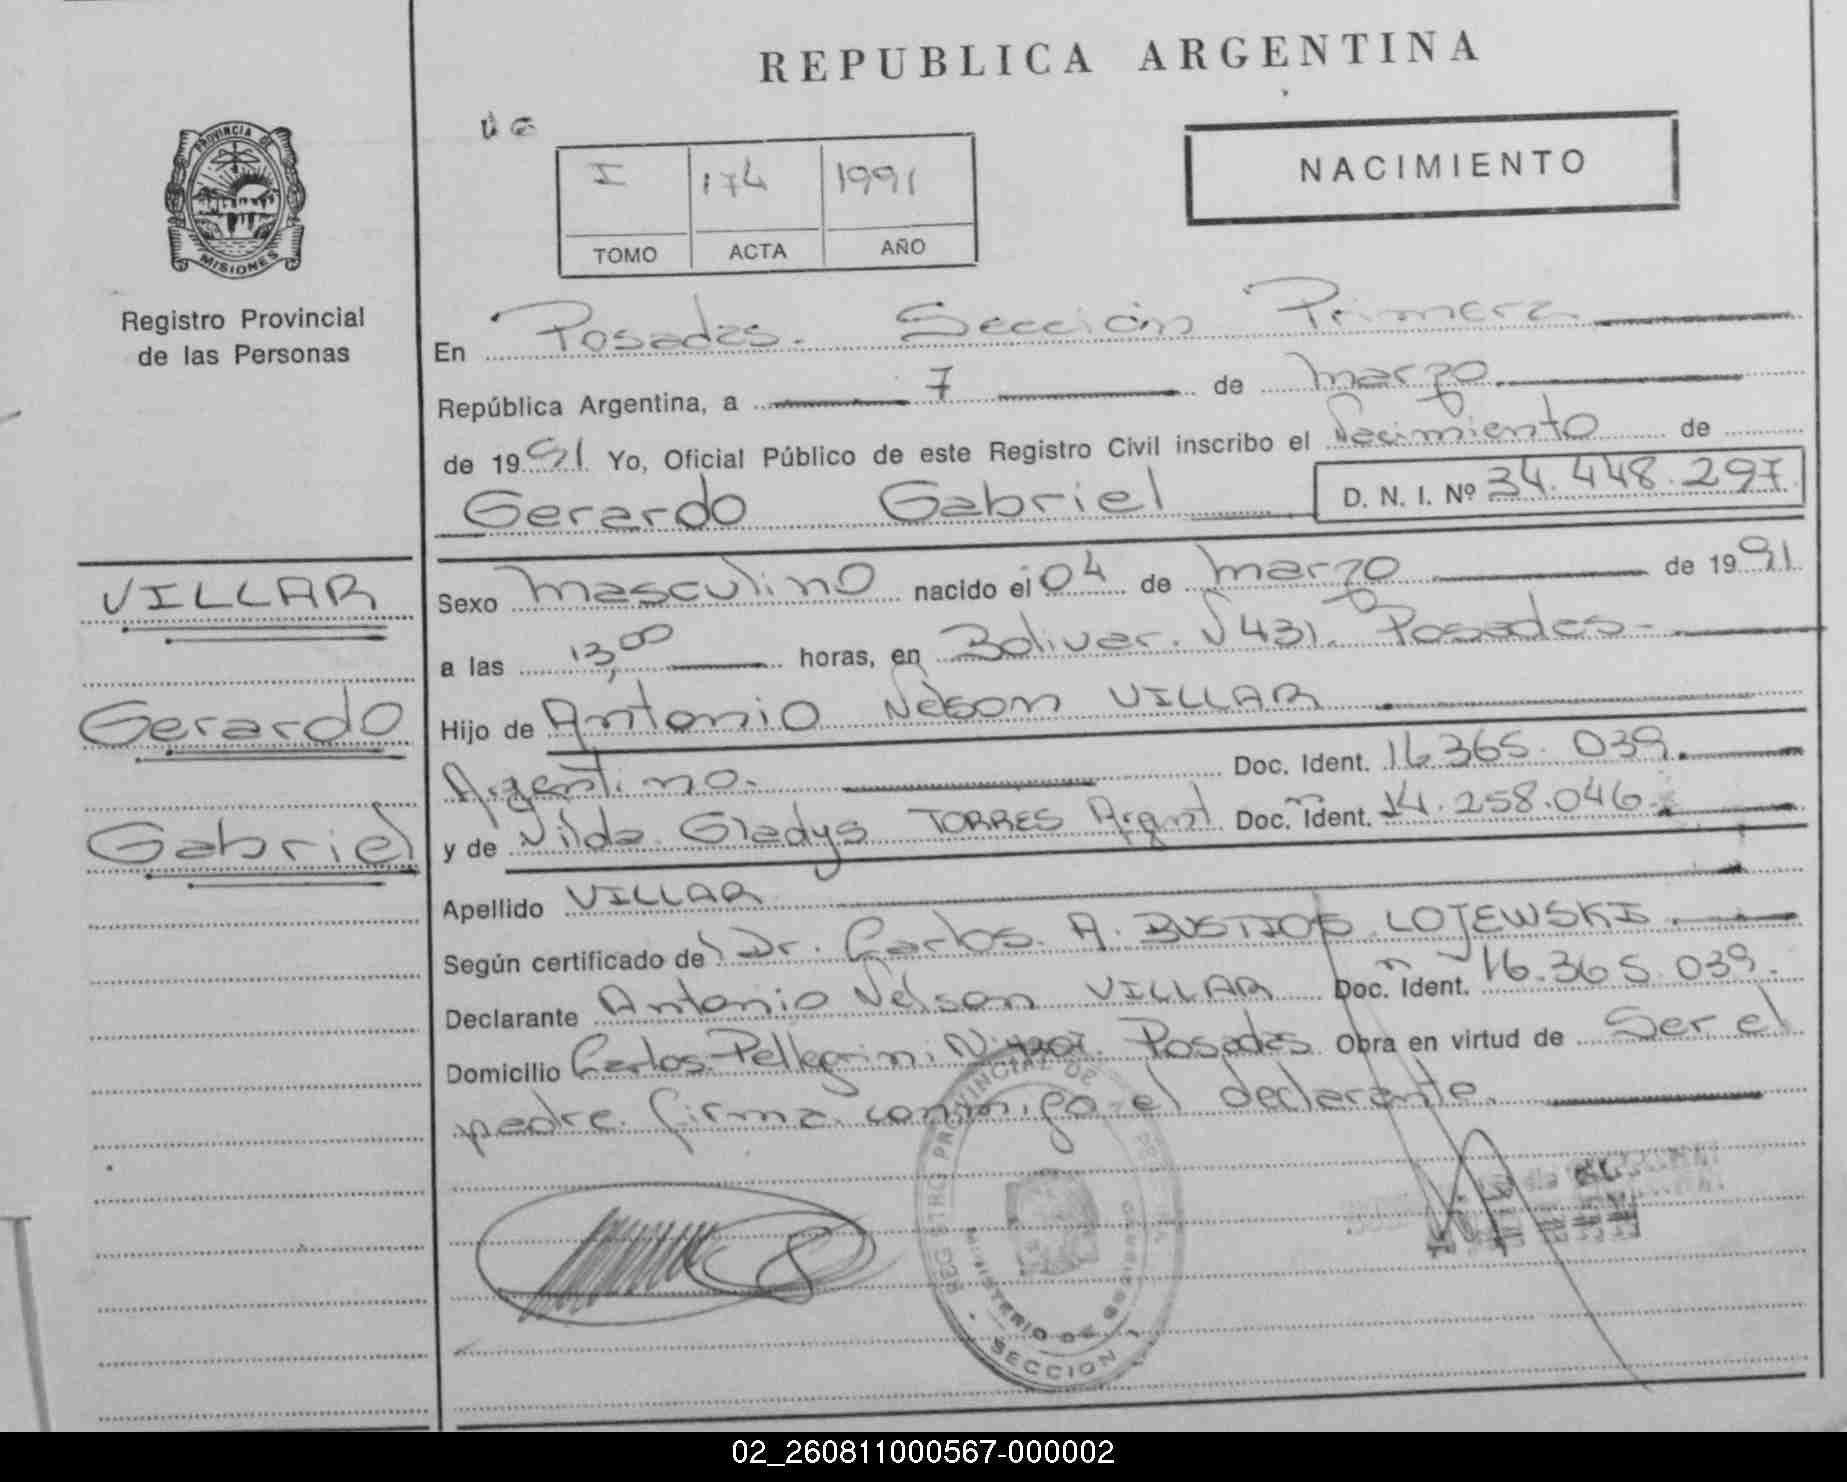 REPUBLICA ARGENTINA
PROVINCIA DE
MISIONES
Registro Provincial
de las Personas
I 174 1991
TOMO ACTA AÑO
NACIMIENTO
En Posadas. Sección Primera
República Argentina, a 7 de marzo
de 1991 Yo, Oficial Público de este Registro Civil inscribo el Nacimiento de
Gerardo Gabriel D. N. I. Nº 34.448.297
VILLAR
Gerardo
Gabriel
Sexo masculino nacido el 04 de marzo de 1991
a las 13,00 horas, en Bolivar. 431. Posadas
Hijo de Antonio Nelson VILLAR
Argentino. Doc. Ident. 16.365.039.
y de Nilda Gladys TORRES Argent Doc. Ident. 14.258.046
Apellido VILLAR
Según certificado de Dr. Carlos A. BUSTIOS LOJEWSKI
Declarante Antonio Nelson VILLAR Doc. Ident. 16.365.039.
Domicilio Carlos Pellegrini Posadas Obra en virtud de Ser el
padre. firma conmigo el declarante.
REGISTRO PROVINCIAL DE
MINISTERIO DE GOBIERNO
SECCION 1
02_260811000567-000002